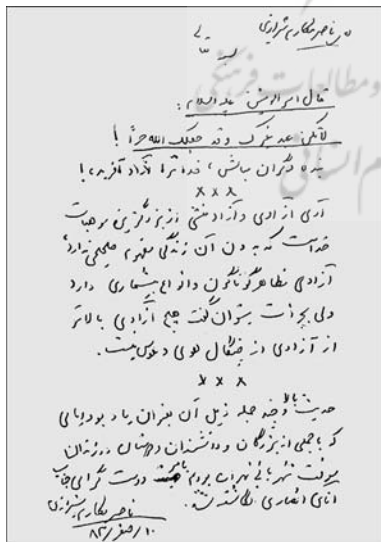 ناصر مکارم شیرازی
بسمه تعالی
قال امیرالمؤمنین علیه السلام:
لاتکن عبد غیرک وقد جعلک الله حراً!
بنده دگران مباش، خدا ترا آزاد آفریده!
×××
آری آزادی و آزادمنشی از بزرگترین موهبات
خداست که بدون آن زندگی مفهوم صحیحی ندارد،
آزادی مظاهر گوناگون و انواع بیشماری دارد
ولی بجرأت میتوان گفت هیچ آزادی بالاتر
از آزادی از چنگال هوی و هوس نیست.
×××
حدیث بالا و چند جمله ذیل آن بعنوان یادبود ایامی
که با جمعی از بزرگان و دانشمندان و دوستان در زندان
موقت شهربانی تهران بودم بامر دوست گرامی جناب
آقای انصاری نگاشته شد.
ناصر مکارم شیرازی
۱۰/صفر/۸۳
ومطالعات فرهنگی
م انسانی